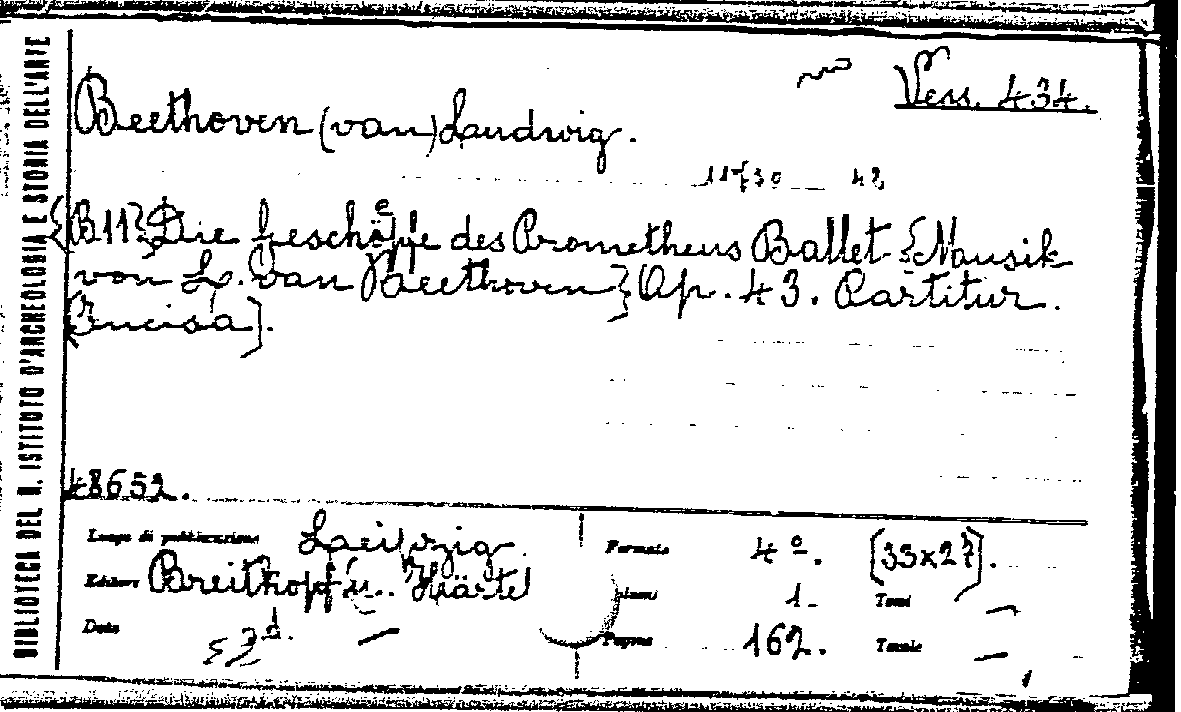 BIBLIOTECA DEL R. ISTITUTO D'ARCHEOLOGIA E STORIA DELL'ARTE
Vess. 434.
Beethoven (van) Ludwig.
11730 42
[B11] Die Geschöpfe des Prometheus Ballet [Mausik
von L. van Beethoven] Op. 43. Partitur.
[Incisa].
48652.
Luogo di pubblicazione Laeipzig.
Editore Breitkopf u. Härtel
Data s. d. —
Formato 4º. [35x27].
Volumi 1. Tomi —
Pagine 162. Tavole —